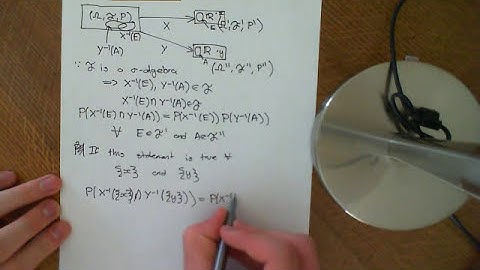 (Ω, ℱ, P)
X
(Ω', ℱ', P')
E
X⁻¹(E)
Y⁻¹(A)
Y
A
(Ω'', ℱ'', P'')
∵ ℱ is a σ-algebra
⟹ X⁻¹(E), Y⁻¹(A) ∈ ℱ
X⁻¹(E) ∩ Y⁻¹(A) ∈ ℱ
P(X⁻¹(E) ∩ Y⁻¹(A)) = P(X⁻¹(E)) P(Y⁻¹(A))
∀ E ∈ ℱ' and A ∈ ℱ''
If this statement is true ∀
{x} and {y}
P(X⁻¹({x}) ∩ Y⁻¹({y})) = P(X⁻¹(